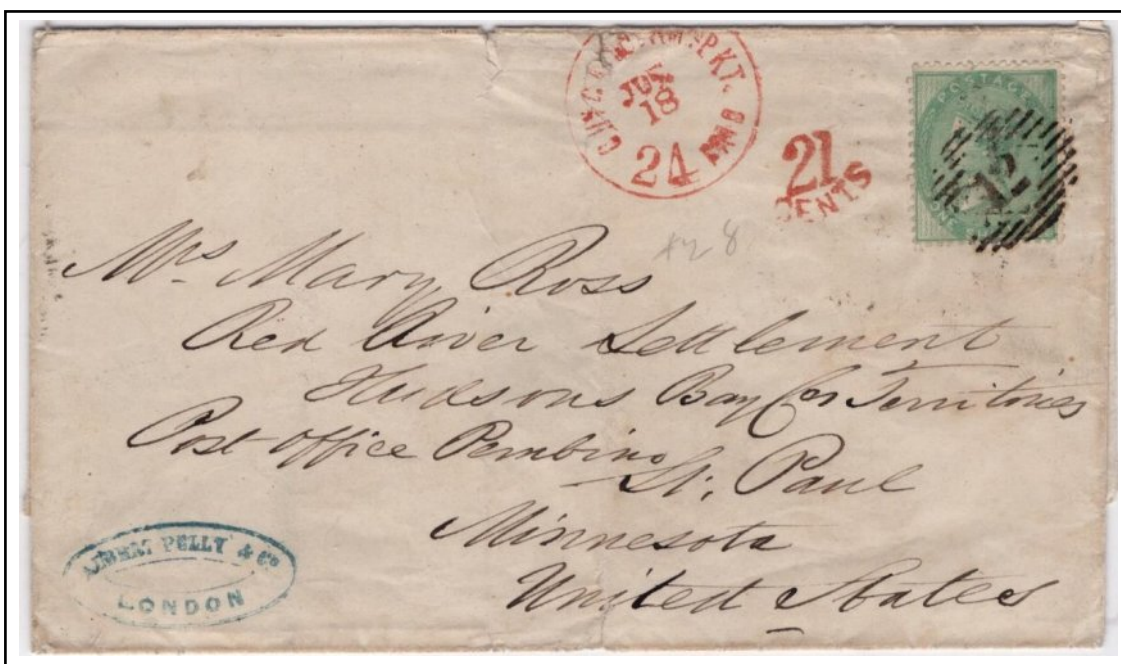 PKT.
JUN
18
24
21
CENTS
POSTAGE
ONE
12
Mrs. Mary Ross
Red River Settlement
Hudsons Bay Cos Territories
Post Office Pembina
St. Paul
Minnesota
United States
PELLY & Co
LONDON